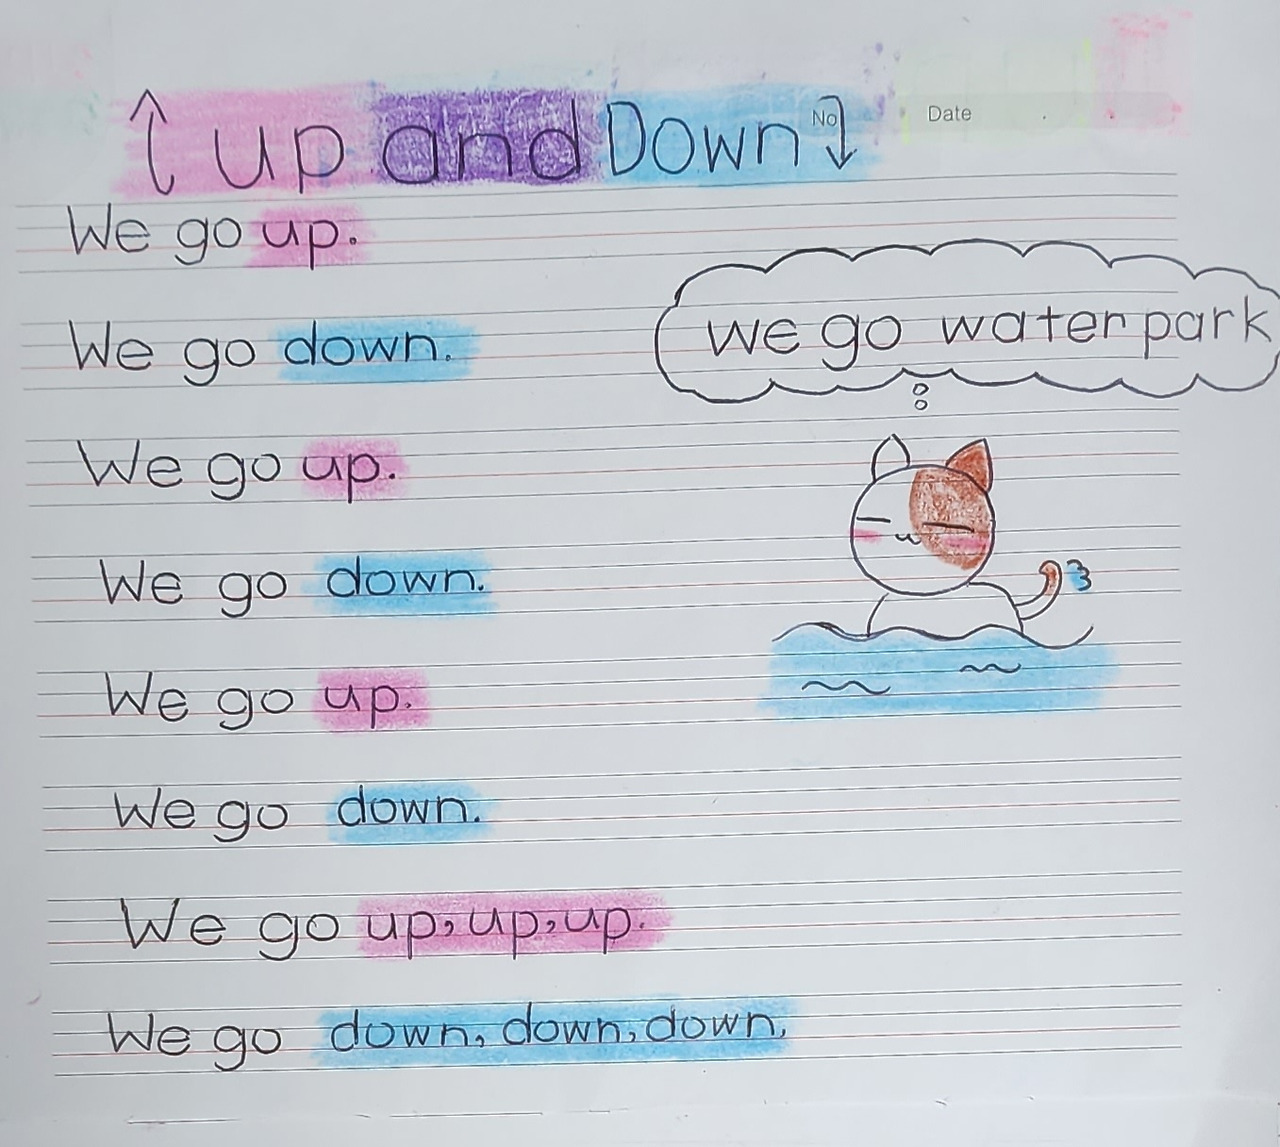 up and Down
No
Date
We go up.
We go down.
we go water park
We go up.
We go down.
We go up.
We go down.
We go up, up, up.
We go down, down, down.